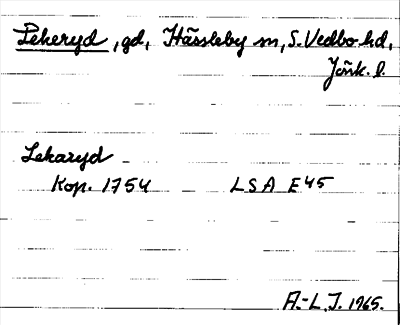 Lekeryd, gd, Hässleby sn, S. Vedbo hd,
Jönk. l.
Lekaryd
Kop. 1754 LSA E45
A.-L. J. 1965.